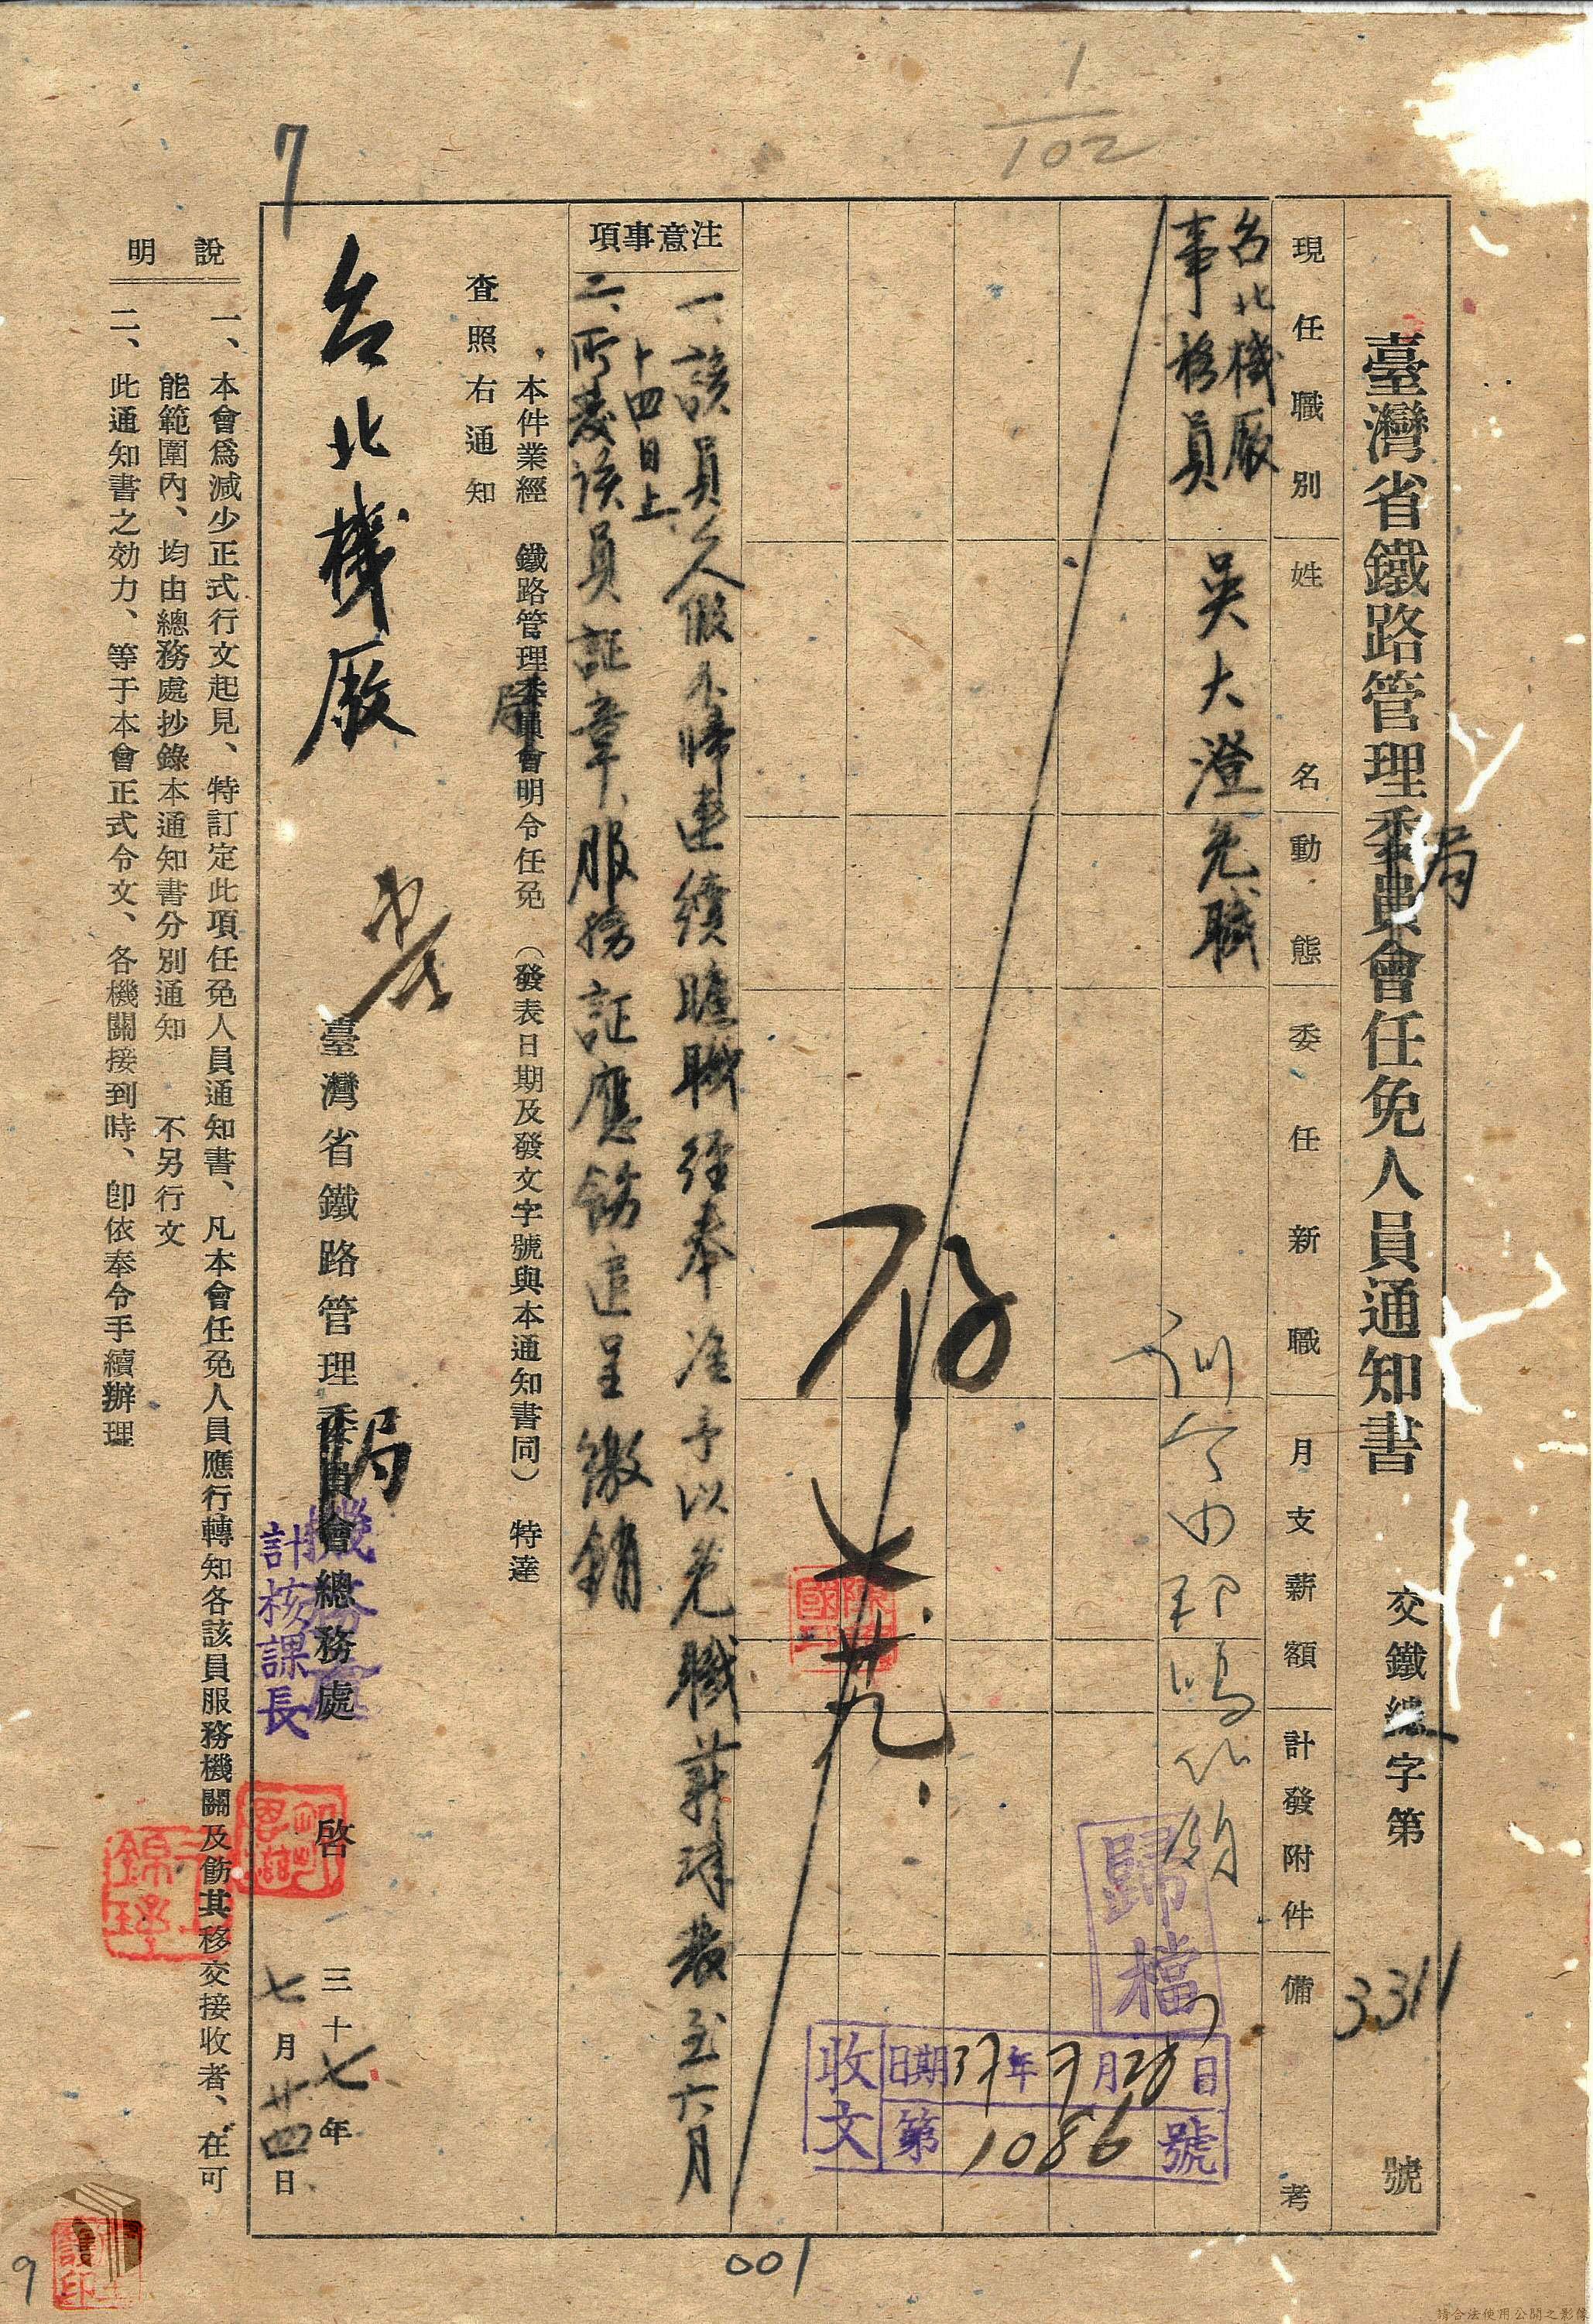 1/102
7
臺灣省鐵路管理委員會任免人員通知書
局
交鐵總字第 3311 號
現任職別
姓名
動態
委任新職
月支薪額
計發附件
備考
台北機廠
事務員
吳大澄
免職
存
七、廿九、
歸檔
收文
日期37年7月28日
第1086號
注意事項
一、該員久假不歸連續曠職經奉准予以免職薪津發至六月
十四日止
二、所發該員証章、服務証應飭追呈繳銷
本件業經 鐵路管理委員會明令任免 (發表日期及發文字號與本通知書同) 特達
局
查照右通知
台北機廠
臺灣省鐵路管理委員會總務處 啓
局
機務處
計核課長
三十七年
七月廿四日
說明
一、本會爲減少正式行文起見、特訂定此項任免人員通知書、凡本會任免人員應行轉知各該員服務機關及飭其移交接收者、在可
能範圍內、均由總務處抄錄本通知書分別通知 不另行文
二、此通知書之効力、等于本會正式令文、各機關接到時、卽依奉令手續辦理
001
9
請合法使用公開之影像